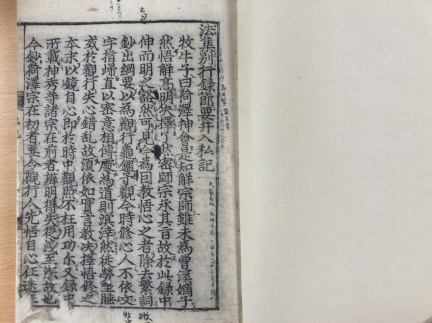 法集別行錄節要并入私記
牧牛子曰荷澤神會是知解宗師雖未為曹溪嫡子
然悟解高明決擇了然密師宗承其言故於此錄中
伸而明之豁然可見今為因教悟心之者除去繁詞
鈔出綱要以為觀行龜鑑予觀今時修心人不依文
字指歸直以密意相傳處為道則溟涬然徒勞坐睡
或於觀行失心錯亂故須依如實言教決擇悟修之
本末以鏡自心即於時中觀照不枉用功尒又錄中
所載神秀等諸宗在前者辨明得失從淺至深故也
今鈔荷澤宗在初者要令觀行人先悟自心任迷任